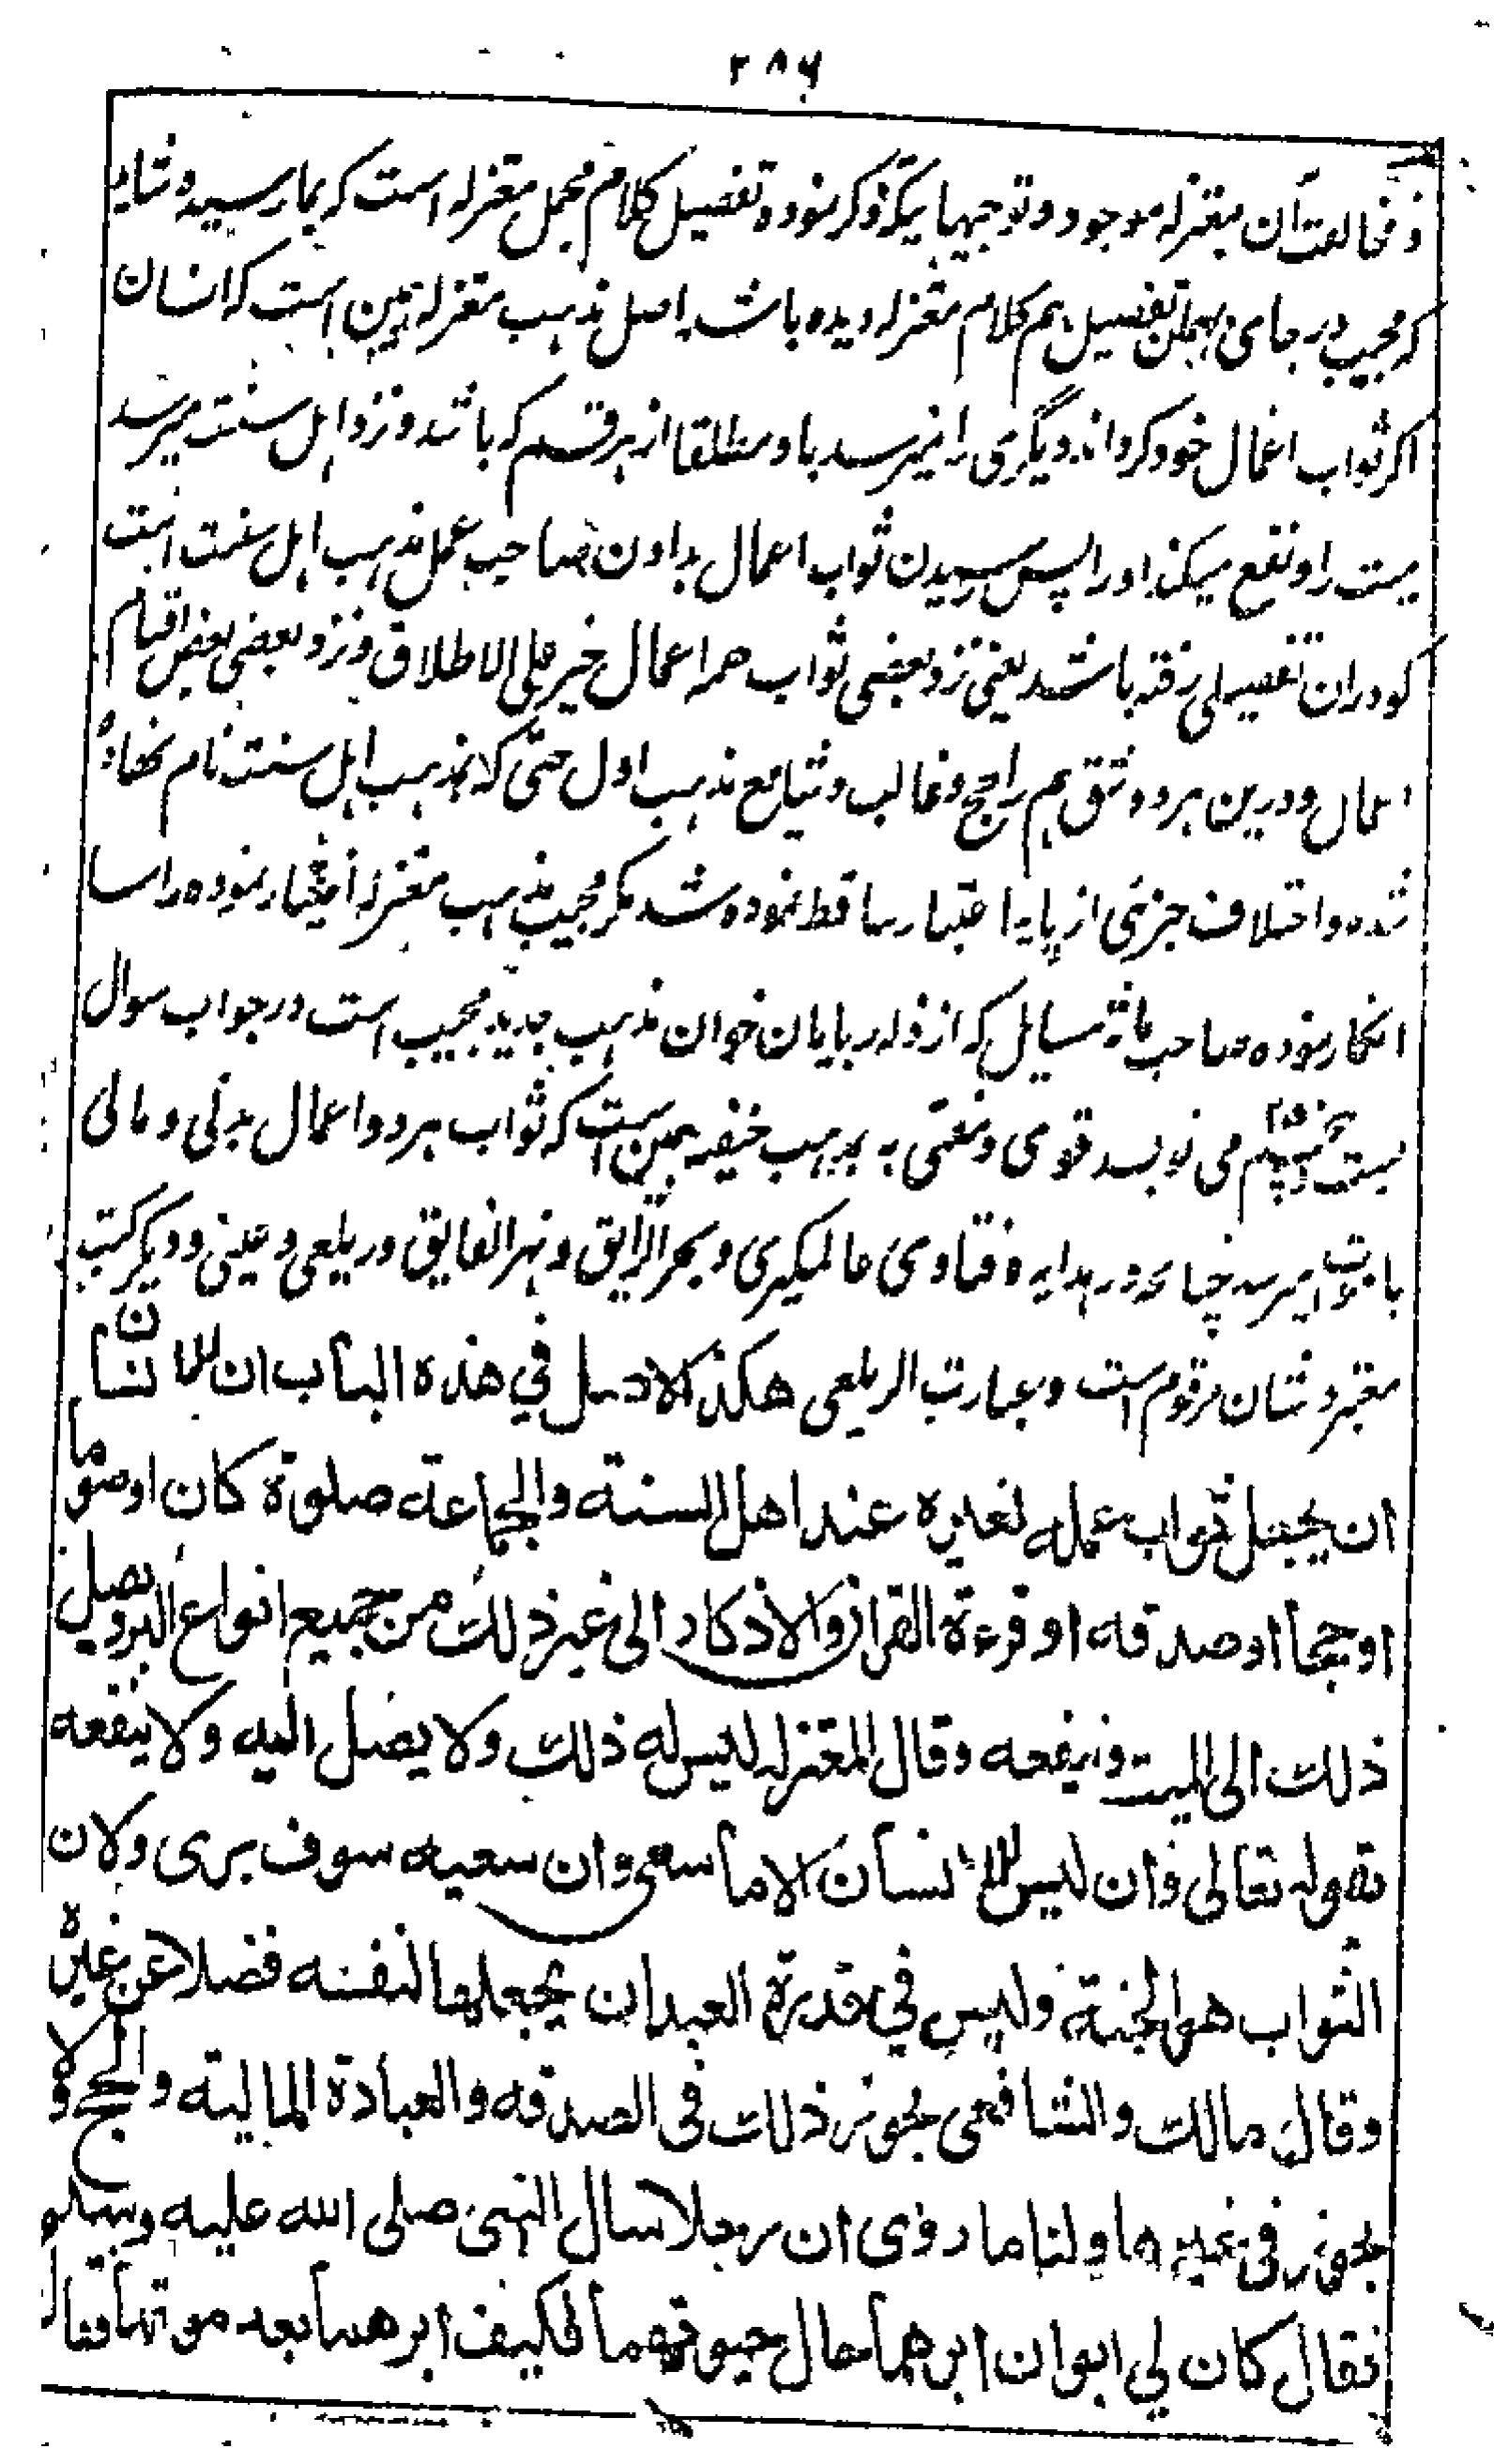 ۲۸۶
و مخالفت آن معتزله موجود و توجیها یکه ذکر نموده تفصیل کلام مجمل معتزله است که بما رسیده شاید
که مجیب در جای بهمان تفصیل هم کلام معتزله دیده باشد اصل مذهب معتزله همین است که انسان
اکر ثواب اعمال خود کرداند دیگری را نمیرسد باو مطلقا از هر قسم که باشد و نزد اهل سنت میرسد
میت را و نفع میکند او را پس رسیدن ثواب اعمال بدادن صاحب عمل مذهب اهل سنت است
کو دران تفصیلی رفته باشد یعنی نزد بعضی ثواب همه اعمال خیر علی الاطلاق و نزد بعضی بعض اقسام
اعمال و درین هر دو شق هم راجح و غالب و شایع مذهب اول حتی که بمذهب اهل سنت نام نهاده
شده و اختلاف جزئی از پایه اعتبار ساقط نموده شد مکر مجیب مذهب معتزله اختیار نموده راسا
انکار نموده صاحب مائة مسایل که از زله ربایان خوان مذهب جدید مجیب است در جواب سوال
بست و پنجم می نویسد قوی و مفتی به بمذهب حنفیه همین است که ثواب هر دو اعمال بدنی و مالی
باموات میرسد چنانچه در هدایه و فتاوی عالمکیری و بحر الرایق و نهر الفایق و زیلعی و عینی و دیکر کتب
معتبره شان مرقوم است و عبارت الزیلعی هکذا الاصل في هذه الباب ان للانسان
ان یجعل ثواب عمله لغیره عند اهل السنة والجماعة صلوة کان او صوما
او حجا او صدقه او قرءة القران والاذکار الی غیر ذلک من جمیع انواع البر و یصل
ذلک الی المیت و ینفعه وقال المعتزله لیس له ذلک ولا یصل الیه ولا ینفعه
لقوله تعالی وان لیس للانسان الا ما سعی وان سعیه سوف یری ولان
الثواب هو الجنة ولیس في قدرة العبد ان یجعلها لنفسه فضلا عن غیره
وقال مالک والشافعی یجوز ذلک فی الصدقه والعبادة المالیة والحج ولا
یجوز فی غیرها ولنا ما روی ان رجلا سال النبی صلی الله علیه وسلم
فقال کان لي ابوان ابرهما حال حیوتهما فکیف ابرهما بعد موتهما فقال